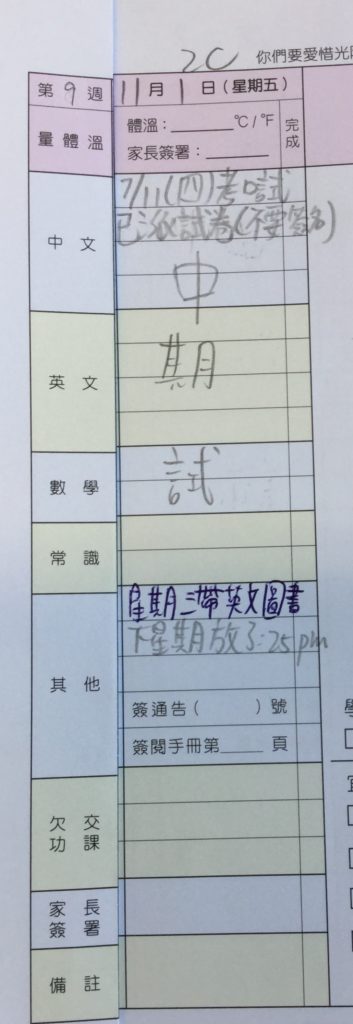 2C 你們要愛惜光
第9週 11月1日(星期五)
量體溫 體溫:______°C/°F 完成
家長簽署:______
7/11(四)考口試
中文 已派試卷(不要簽名)
中
英文 期
數學 試
常識
星期三帶英文圖書
下星期放3:25pm
其他
簽通告( )號
簽閱手冊第____頁
欠交功課
家長簽署
備註